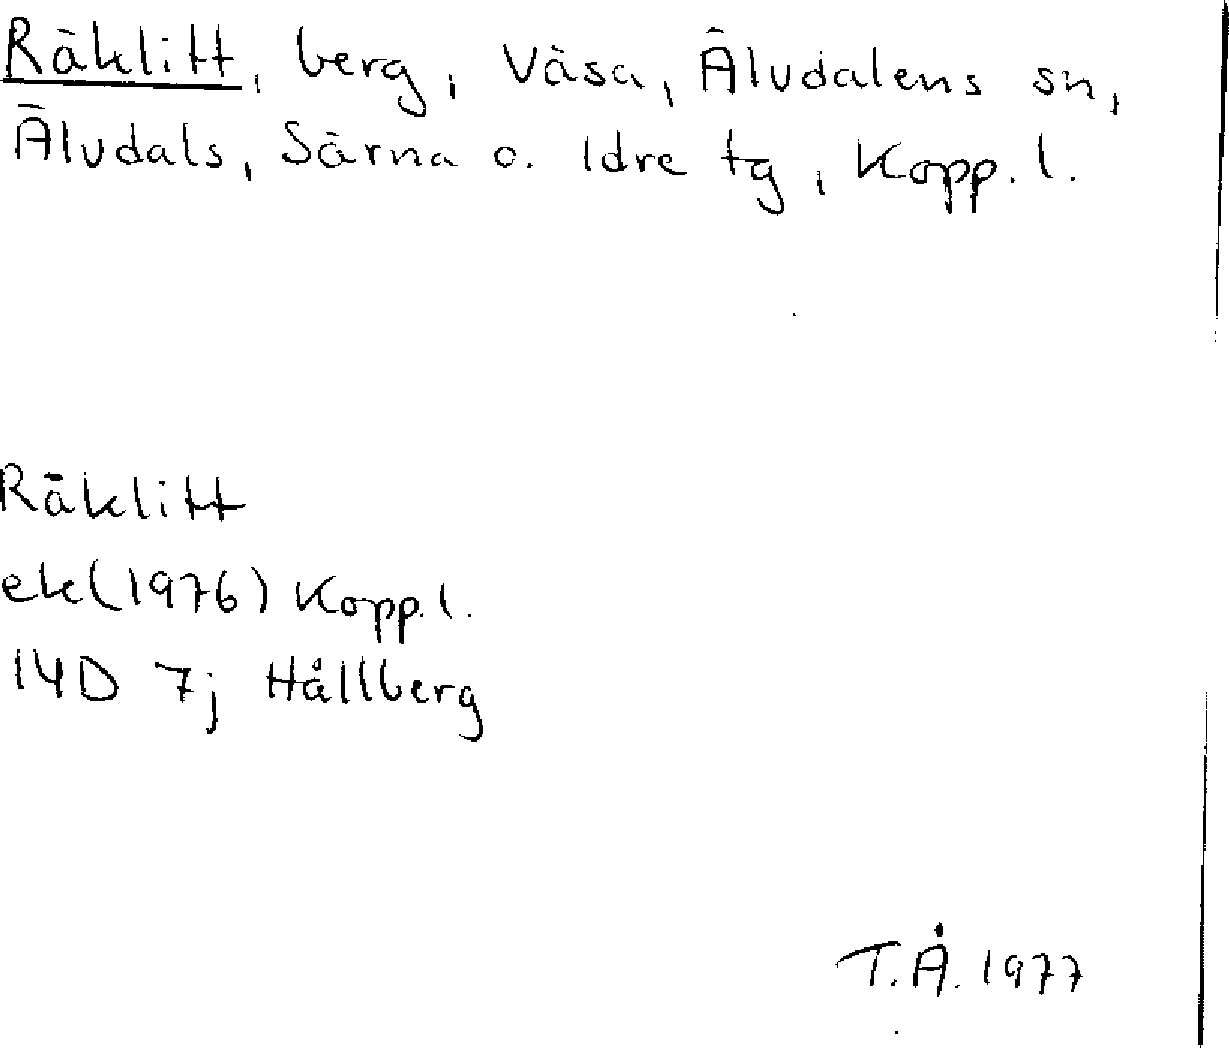 Räklitt, berg, Väsa, Älvdalens sn,
Älvdals, Särna o. Idre tg, Kopp. l.
Räklitt
ek(1976) Kopp. l.
14D 7j Hållberg
T.Å. 1977